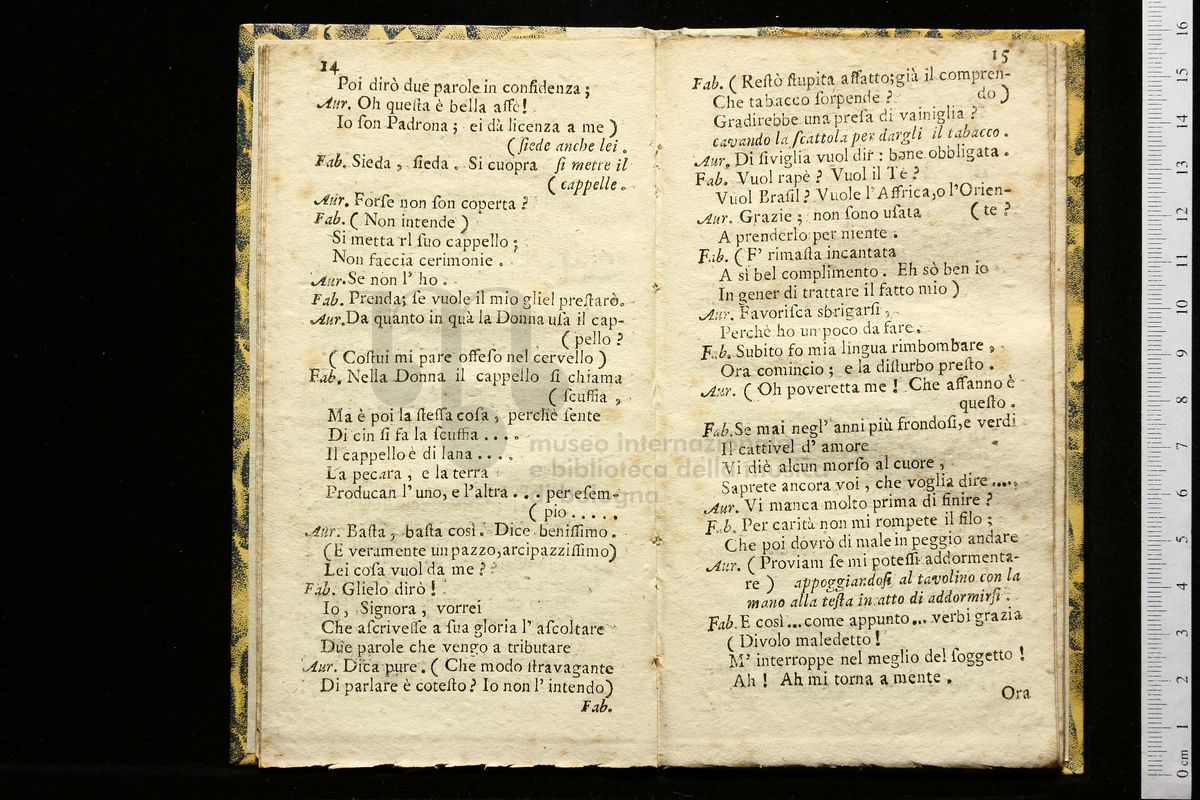 14
Poi dirò due parole in confidenza;
Aur. Oh queſta è bella affè!
Io ſon Padrona; ei dà licenza a me )
(ſiede anche lei.
Fab. Sieda, ſieda. Si cuopra ſi mette il
( cappelle.
Aur. Forſe non ſon coperta?
Fab. ( Non intende )
Si metta il ſuo cappello;
Non faccia cerimonie.
Aur. Se non l' ho.
Fab. Prenda; ſe vuole il mio gliel preſtarò.
Aur. Da quanto in quà la Donna uſa il cap-
( pello?
( Coſtui mi pare offeſo nel cervello )
Fab. Nella Donna il cappello ſi chiama
( ſcuffia,
Ma è poi la ſteſſa coſa, perchè ſente
Di cin ſi fa la ſcuffia ....
Il cappello è di lana ....
La pecara, e la terra
Producan l' uno, e l'altra ... per eſem-
( pio .....
Aur. Baſta, baſta così. Dice beniſſimo.
(E veramente un pazzo, arcipazziſſimo)
Lei coſa vuol da me?
Fab. Glielo dirò!
Io, Signora, vorrei
Che aſcriveſſe a ſua gloria l' aſcoltare
Due parole che vengo a tributare
Aur. Dica pure. ( Che modo ſtravagante
Di parlare è coteſto? Io non l' intendo)
Fab.
15
Fab. ( Reſtò ſtupita affatto; già il compren-
Che tabacco ſorpende? do )
Gradirebbe una preſa di vainiglia?
cavando la ſcattola per dargli il tabacco.
Aur. Di ſiviglia vuol dir: bene obbligata.
Fab. Vuol rapè? Vuol il Tè?
Vuol Braſil? Vuole l'Affrica, o l'Orien-
Aur. Grazie; non ſono uſata ( te?
A prenderlo per niente.
Fab. ( E' rimaſta incantata
A sì bel complimento. Eh sò ben io
In gener di trattare il fatto mio )
Aur. Favoriſca sbrigarſi,
Perchè ho un poco da fare.
Fab. Subito fo mia lingua rimbombare,
Ora comincio; e la diſturbo preſto.
Aur. ( Oh poveretta me! Che affanno è
queſto.
Fab. Se mai negl' anni più frondoſi, e verdi
Il cattivel d' amore
Vi diè alcun morſo al cuore,
Saprete ancora voi, che voglia dire .....
Aur. Vi manca molto prima di finire?
Fab. Per carità non mi rompete il filo;
Che poi dovrò di male in peggio andare
Aur. ( Proviam ſe mi poteſſi addormenta-
re ) appoggiandoſi al tavolino con la
mano alla teſta in atto di addormirſi.
Fab. E così ... come appunto ... verbi grazia
( Divolo maledetto!
M' interroppe nel meglio del ſoggetto!
Ah! Ah mi torna a mente.
Ora
museo internazionale
e biblioteca della musica
di bologna
0 cm 1 2 3 4 5 6 7 8 9 10 11 12 13 14 15 16